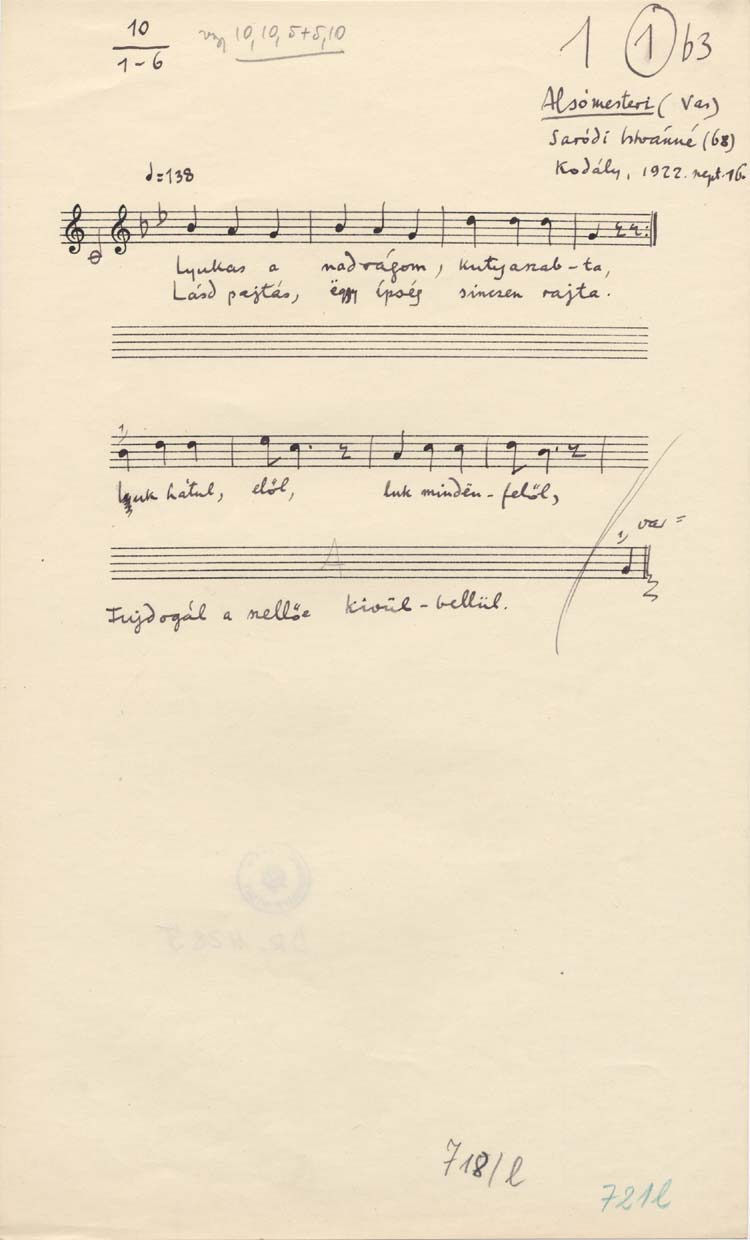 10
1-6
vagy 10, 10, 5+5, 10
1 1 b3
Alsómesteri (Vas)
Saródi Istvánné (68)
Kodály, 1922. szept. 16.
=138
Lyukas a nadrágom, kutyaszab-ta,
Lásd pajtás, ëggy épség sincsen rajta.
1)
Lyuk hátul, elöl, luk mindën-felöl,
1, var =
A
Fujdogál a szellőe kivül-bellül.
718/l
721l